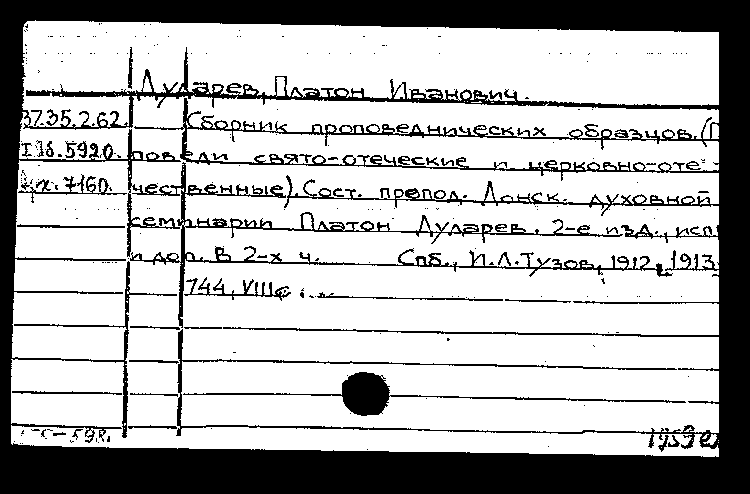 Дударев, Платон Иванович.
37.35.2.62. Сборник проповеднических образцов. (П
I 98.5920. поведи свято-отеческие и церковно-оте-
7160. чественные). Сост. препод. Донск. духовной
семинарии Платон Дударев. 2-е изд., исп
и доп. В 2-х ч. Спб., И.Л.Тузов, 1912, 1913
744, VIII с.
598.
1959